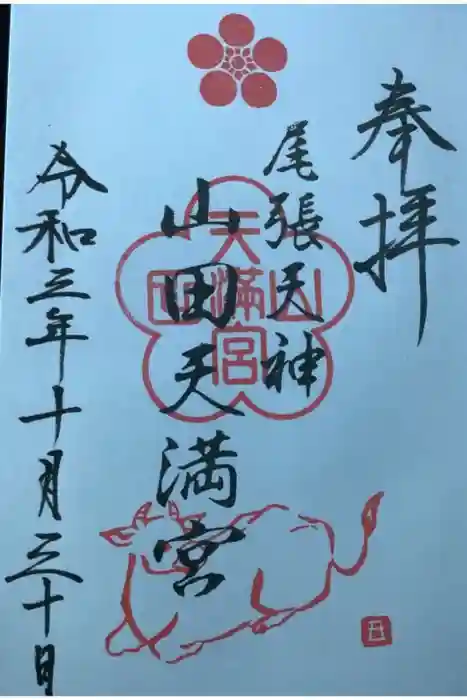 奉拝
尾張天神
山田天満宮
令和三年十月三十日
天満宮
山
田
丑